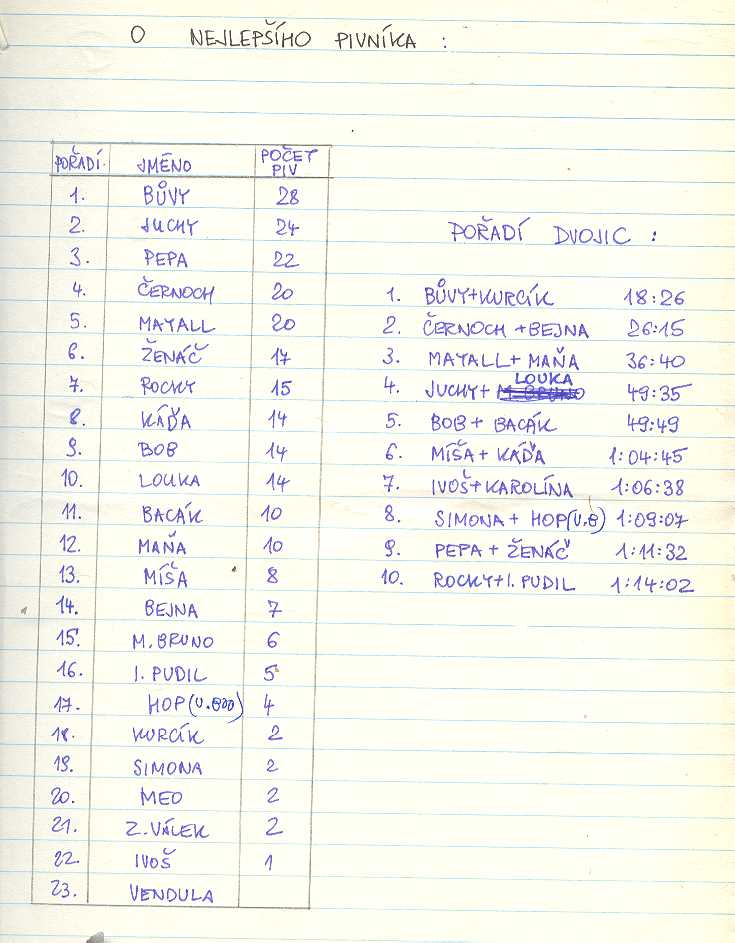 O NEJLEPŠÍHO PIVNÍKA :
POŘADÍ JMÉNO POČET PIV
1. BŮVY 28
2. JUCHY 24
3. PEPA 22
4. ČERNOCH 20
5. MAYALL 20
6. ŽENÁČ 17
7. ROCKY 15
8. KÁĎA 14
9. BOB 14
10. LOUKA 14
11. BACÁK 10
12. MAŇA 10
13. MÍŠA 8
14. BEJNA 7
15. M. BRUNO 6
16. I. PUDIL 5
17. HOP 4
18. KURCÍK 2
19. SIMONA 2
20. MEO 2
21. Z. VÁLEK 2
22. IVOŠ 1
23. VENDULA
POŘADÍ DVOJIC :
1. BŮVY+KURCÍK 18:26
2. ČERNOCH+BEJNA 26:15
3. MAYALL+MAŇA 36:40
4. JUCHY+ LOUKA 49:35
5. BOB + BACÁK 49:49
6. MÍŠA + KÁĎA 1:04:45
7. IVOŠ+KAROLÍNA 1:06:38
8. SIMONA + HOP 1:09:07
9. PEPA + ŽENÁČ 1:11:32
10. ROCKY+I. PUDIL 1:14:02